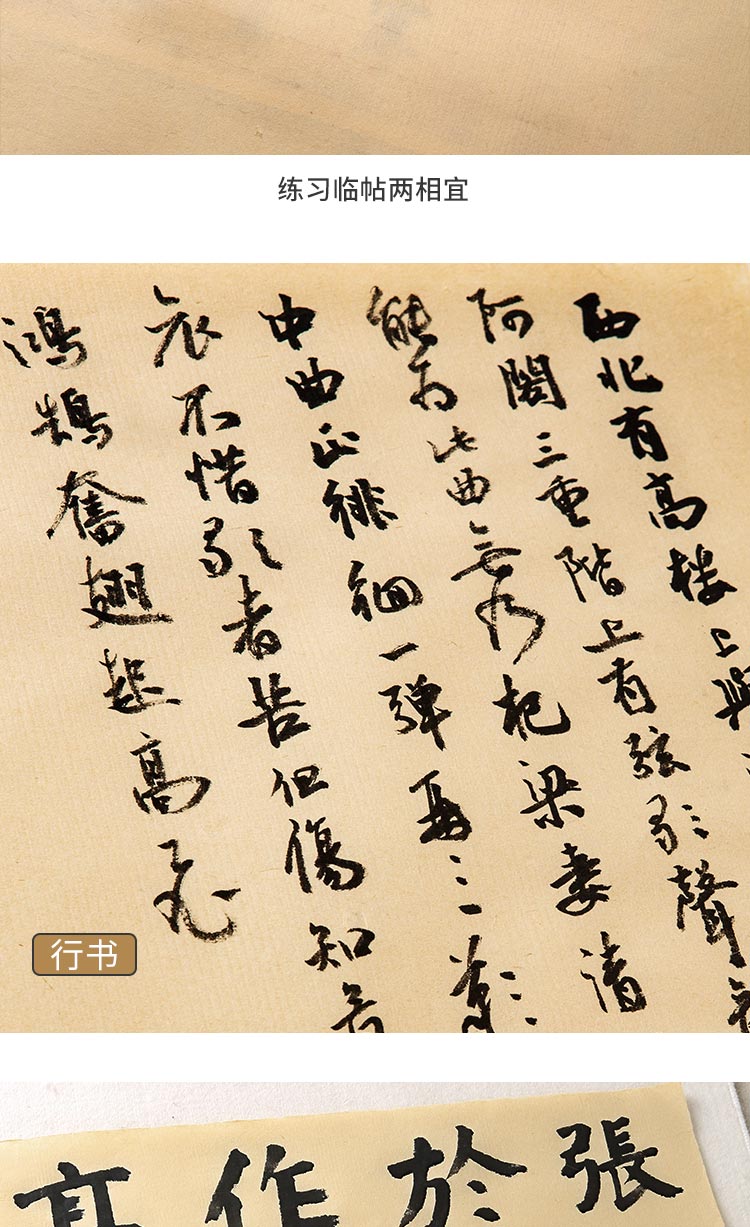 练习临帖两相宜
西北有高楼上與
阿閣三重階上有弦歌聲
能為此曲無乃杞梁妻清
中曲正徘徊一弹再三歎
哀不惜歌者苦但傷知音
鴻鵠奮翅起高飛
行书
張於作